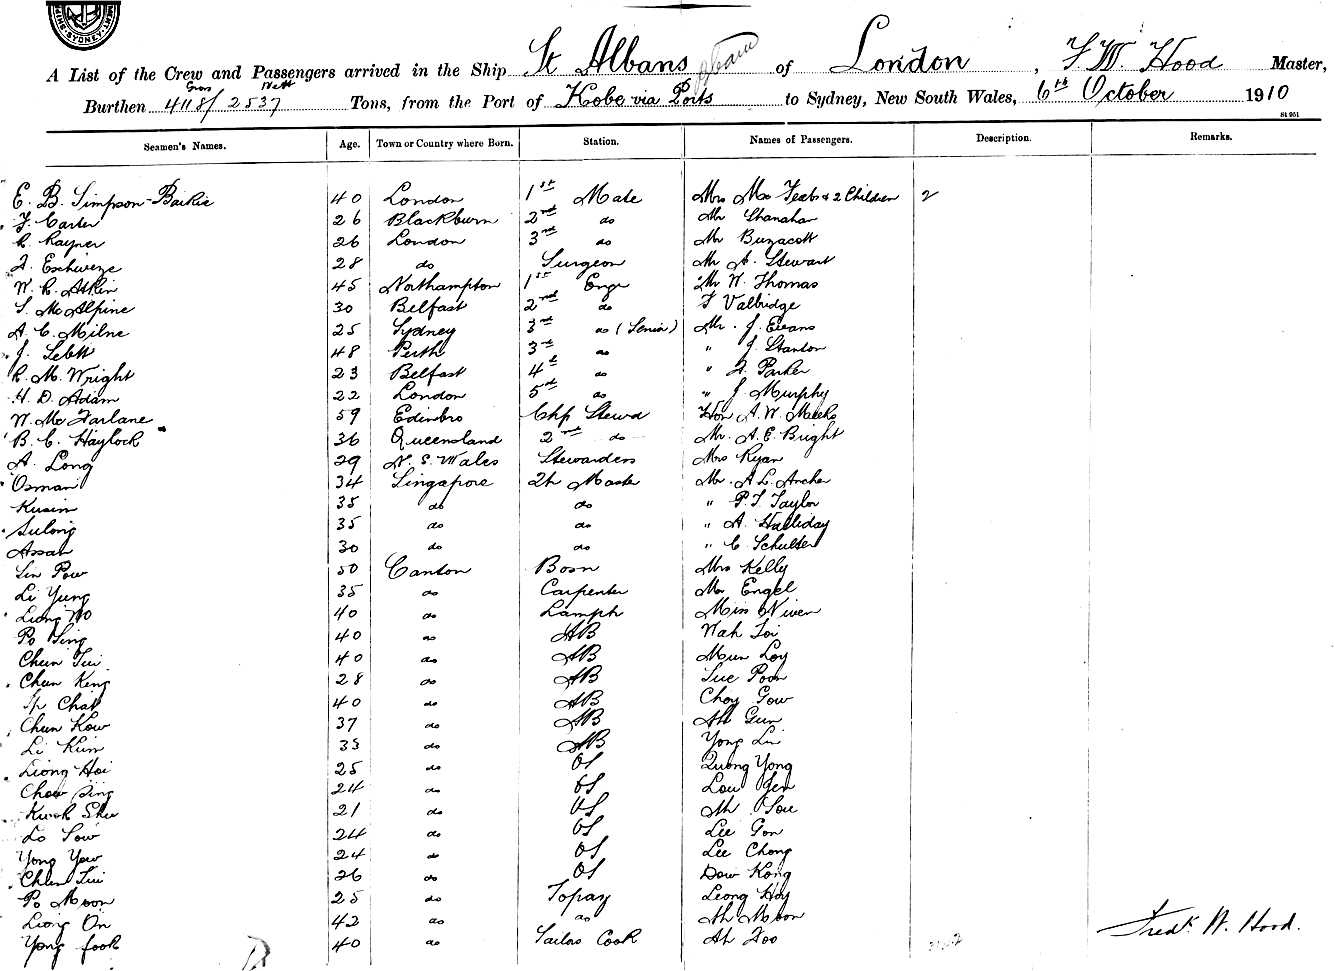 SHIPPING MASTER'S
SYDNEY
A List of the Crew and Passengers arrived in the Ship St Albans of London, F. W. Hood Master,
Gross Nett
Burthen 4118/2537 Tons, from the Port of Kobe via Ports to Sydney, New South Wales, 6th October 1910
St 951
Seamen's Names. Age. Town or Country where Born. Station. Names of Passengers. Description. Remarks.
E. B. Simpson-Baikie 40 London 1st Mate Mrs & 2 Children 2
F. Carter 26 Blackburn 2nd do Mr Shanahan
R. Rayner 26 London 3rd do Mr Buzacott
28 do Surgeon Mr A. Stewart
W. R. Atkin 45 Northampton 1st Engr Mr W. Thomas
S. McAlpine 30 Belfast 2nd do F Valbridge
A. C. Milne 25 Sydney 3rd do (Senior) Mr. J. Evans
J. 48 Perth 3rd do " J. Stanton
R. M. Wright 23 Belfast 4th do " A. Parker
H. D. Adam 22 London 5th do " J Murphy
W. McFarlane 59 Edinbro Chf Stewd Hon A. W. Meeks
B. C. Haylock 36 Queensland 2nd do Mr. A. E. Bright
A. Long 29 N. S. Wales Stewardess Mrs Ryan
Osman 34 Singapore Qr Master Mr. A L. Archer
Kusin 35 do do " P. T. Taylor
Sulong 35 do do " A. Halliday
Assan 30 do do " C Schulter
Sin Pow 50 Canton Bosn Mrs Kelly
Li Yung 35 do Carpenter Mr Engel
Liong Wo 40 do Lampm Miss Niven
Po Sing 40 do AB Wah Loi
Chun Tui 40 do AB Mun Loy
Chun Keng 28 do AB Sue Poon
Ip Chat 40 do AB Choy Gow
Chun Kow 37 do AB Ah Gun
Li Kum 33 do AB Yong Lin
Liong Hoi 25 do OS Quong Yong
Chow Sing 24 do OS Lou Gen
Kwok Shu 21 do OS Ah You
Lo Sow 24 do OS Lee Gon
Yong Yow 24 do OS Lee Chong
Chun Tui 26 do OS Dow Kong
Po Moon 25 do Topaz Leong Hoy
Liong On 42 do do Ah Moon
Yong fook 40 do Sailors Cook Ah Foo
Fredk W. Hood.